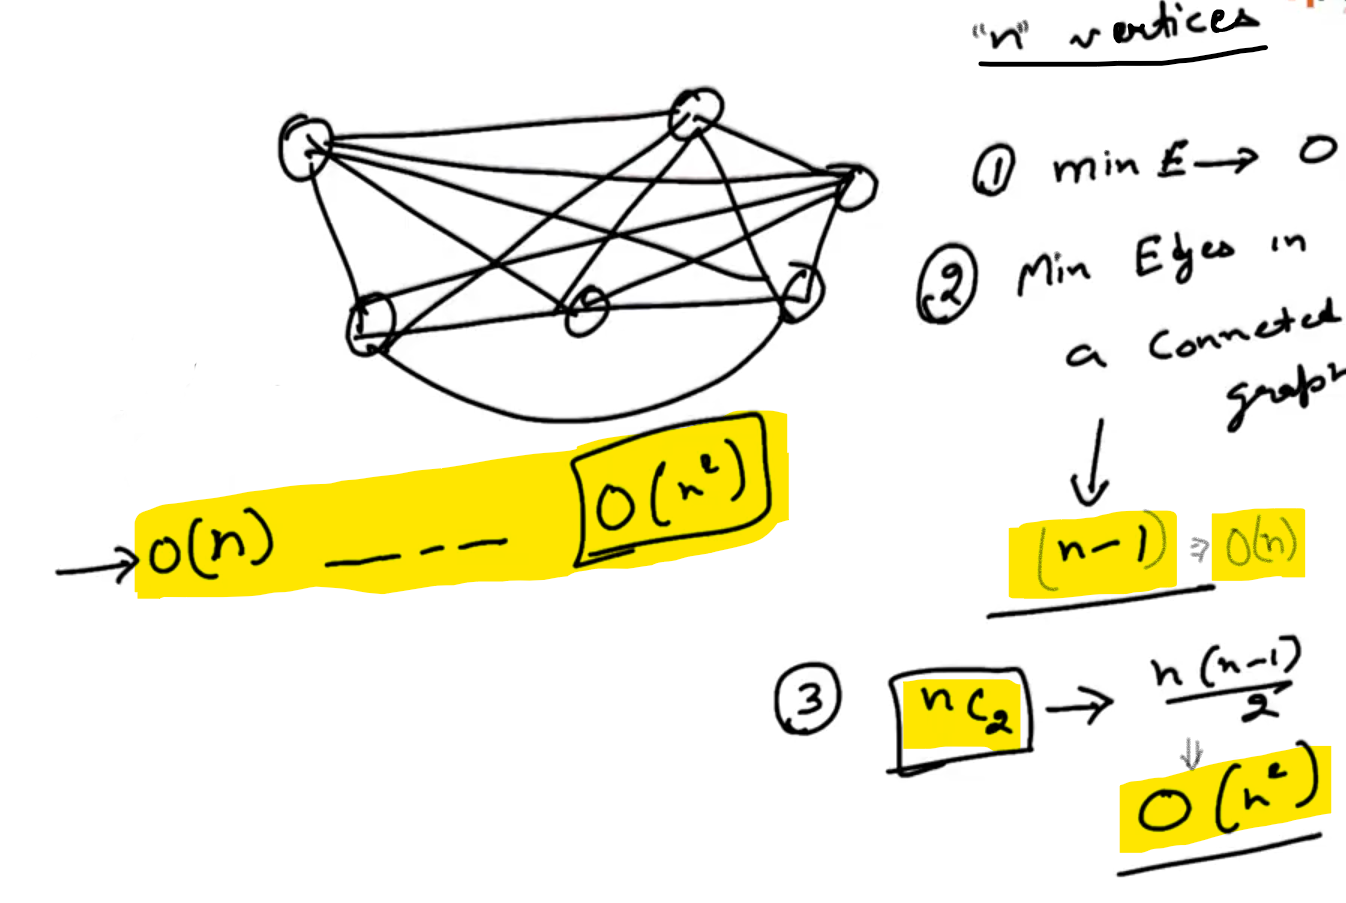 "n" vertices
① min E → 0
② Min Edges in
a Conneted
graph
(n-1) ⇒ O(n)
→ O(n) — - - — O(n²)
③ nC₂ → n(n-1)/2
⇓
O(n²)